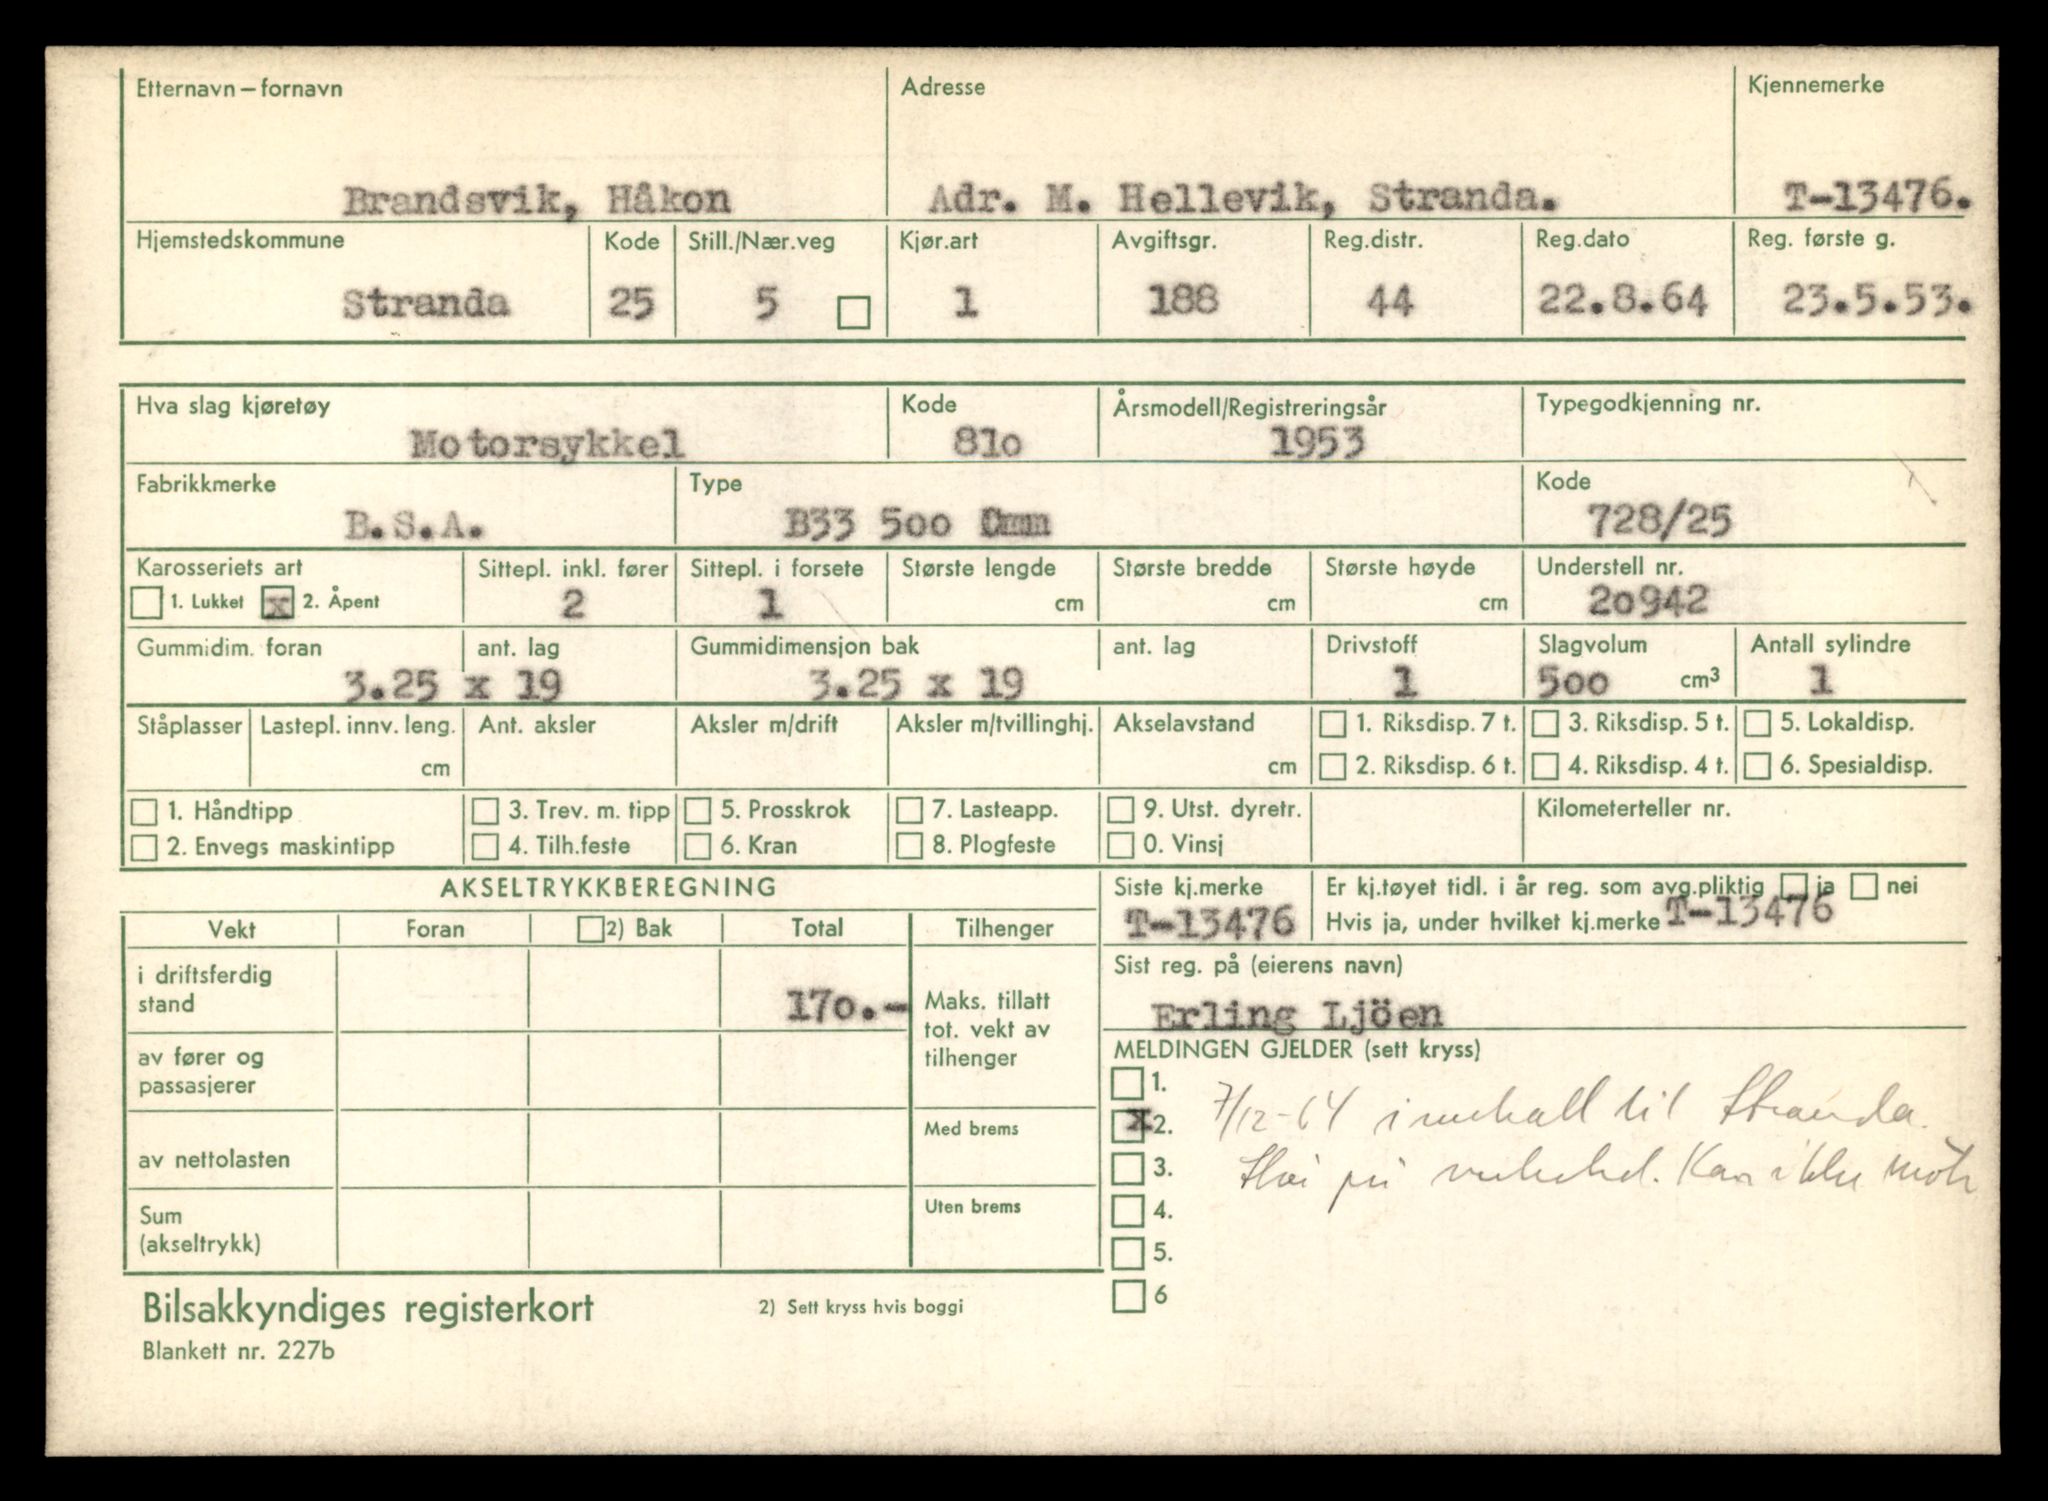 Etternavn – fornavn Adresse Kjennemerke
Brandsvik, Håkon Adr. M. Hellevik, Stranda. T-13476.
Hjemstedskommune Kode Still./Nær.veg Kjør.art Avgiftsgr. Reg.distr. Reg.dato Reg. første g.
Stranda 25 5 1 188 44 22.8.64 23.5.53.
Hva slag kjøretøy Kode Årsmodell/Registreringsår Typegodkjenning nr.
Motorsykkel 81o 1953
Fabrikkmerke Type Kode
B.S.A. B33 5oo 728/25
Karosseriets art Sittepl. inkl. fører Sittepl. i forsete Største lengde Største bredde Største høyde Understell nr.
1. Lukket x 2. Åpent 2 1 cm cm cm 2o942
Gummidim. foran ant. lag Gummidimensjon bak ant. lag Drivstoff Slagvolum Antall sylindre
3.25 x 19 3.25 x 19 1 5oo cm3 1
Ståplasser Lastepl. innv. leng. Ant. aksler Aksler m/drift Aksler m/tvillinghj. Akselavstand 1. Riksdisp. 7 t. 3. Riksdisp. 5 t. 5. Lokaldisp.
cm cm 2. Riksdisp. 6 t. 4. Riksdisp. 4 t. 6. Spesialdisp.
1. Håndtipp 3. Trev. m. tipp 5. Prosskrok 7. Lasteapp. 9. Utst. dyretr. Kilometerteller nr.
2. Envegs maskintipp 4. Tilh.feste 6. Kran 8. Plogfeste 0. Vinsj
AKSELTRYKKBEREGNING Siste kj.merke Er kj.tøyet tidl. i år reg. som avg.pliktig ja nei
T-13476 Hvis ja, under hvilket kj.merke T-13476
Vekt Foran 2) Bak Total Tilhenger
Sist reg. på (eierens navn)
i driftsferdig
stand 17o.- Maks. tillatt
tot. vekt av
tilhenger
Erling Ljöen
MELDINGEN GJELDER (sett kryss)
av fører og
passasjerer
1.
x 2. 7/12-64 innkalt til Stranda.
Med brems
av nettolasten
3. Kan ikke
Uten brems
4.
Sum
(akseltrykk)
5.
6
Bilsakkyndiges registerkort 2) Sett kryss hvis boggi
Blankett nr. 227b